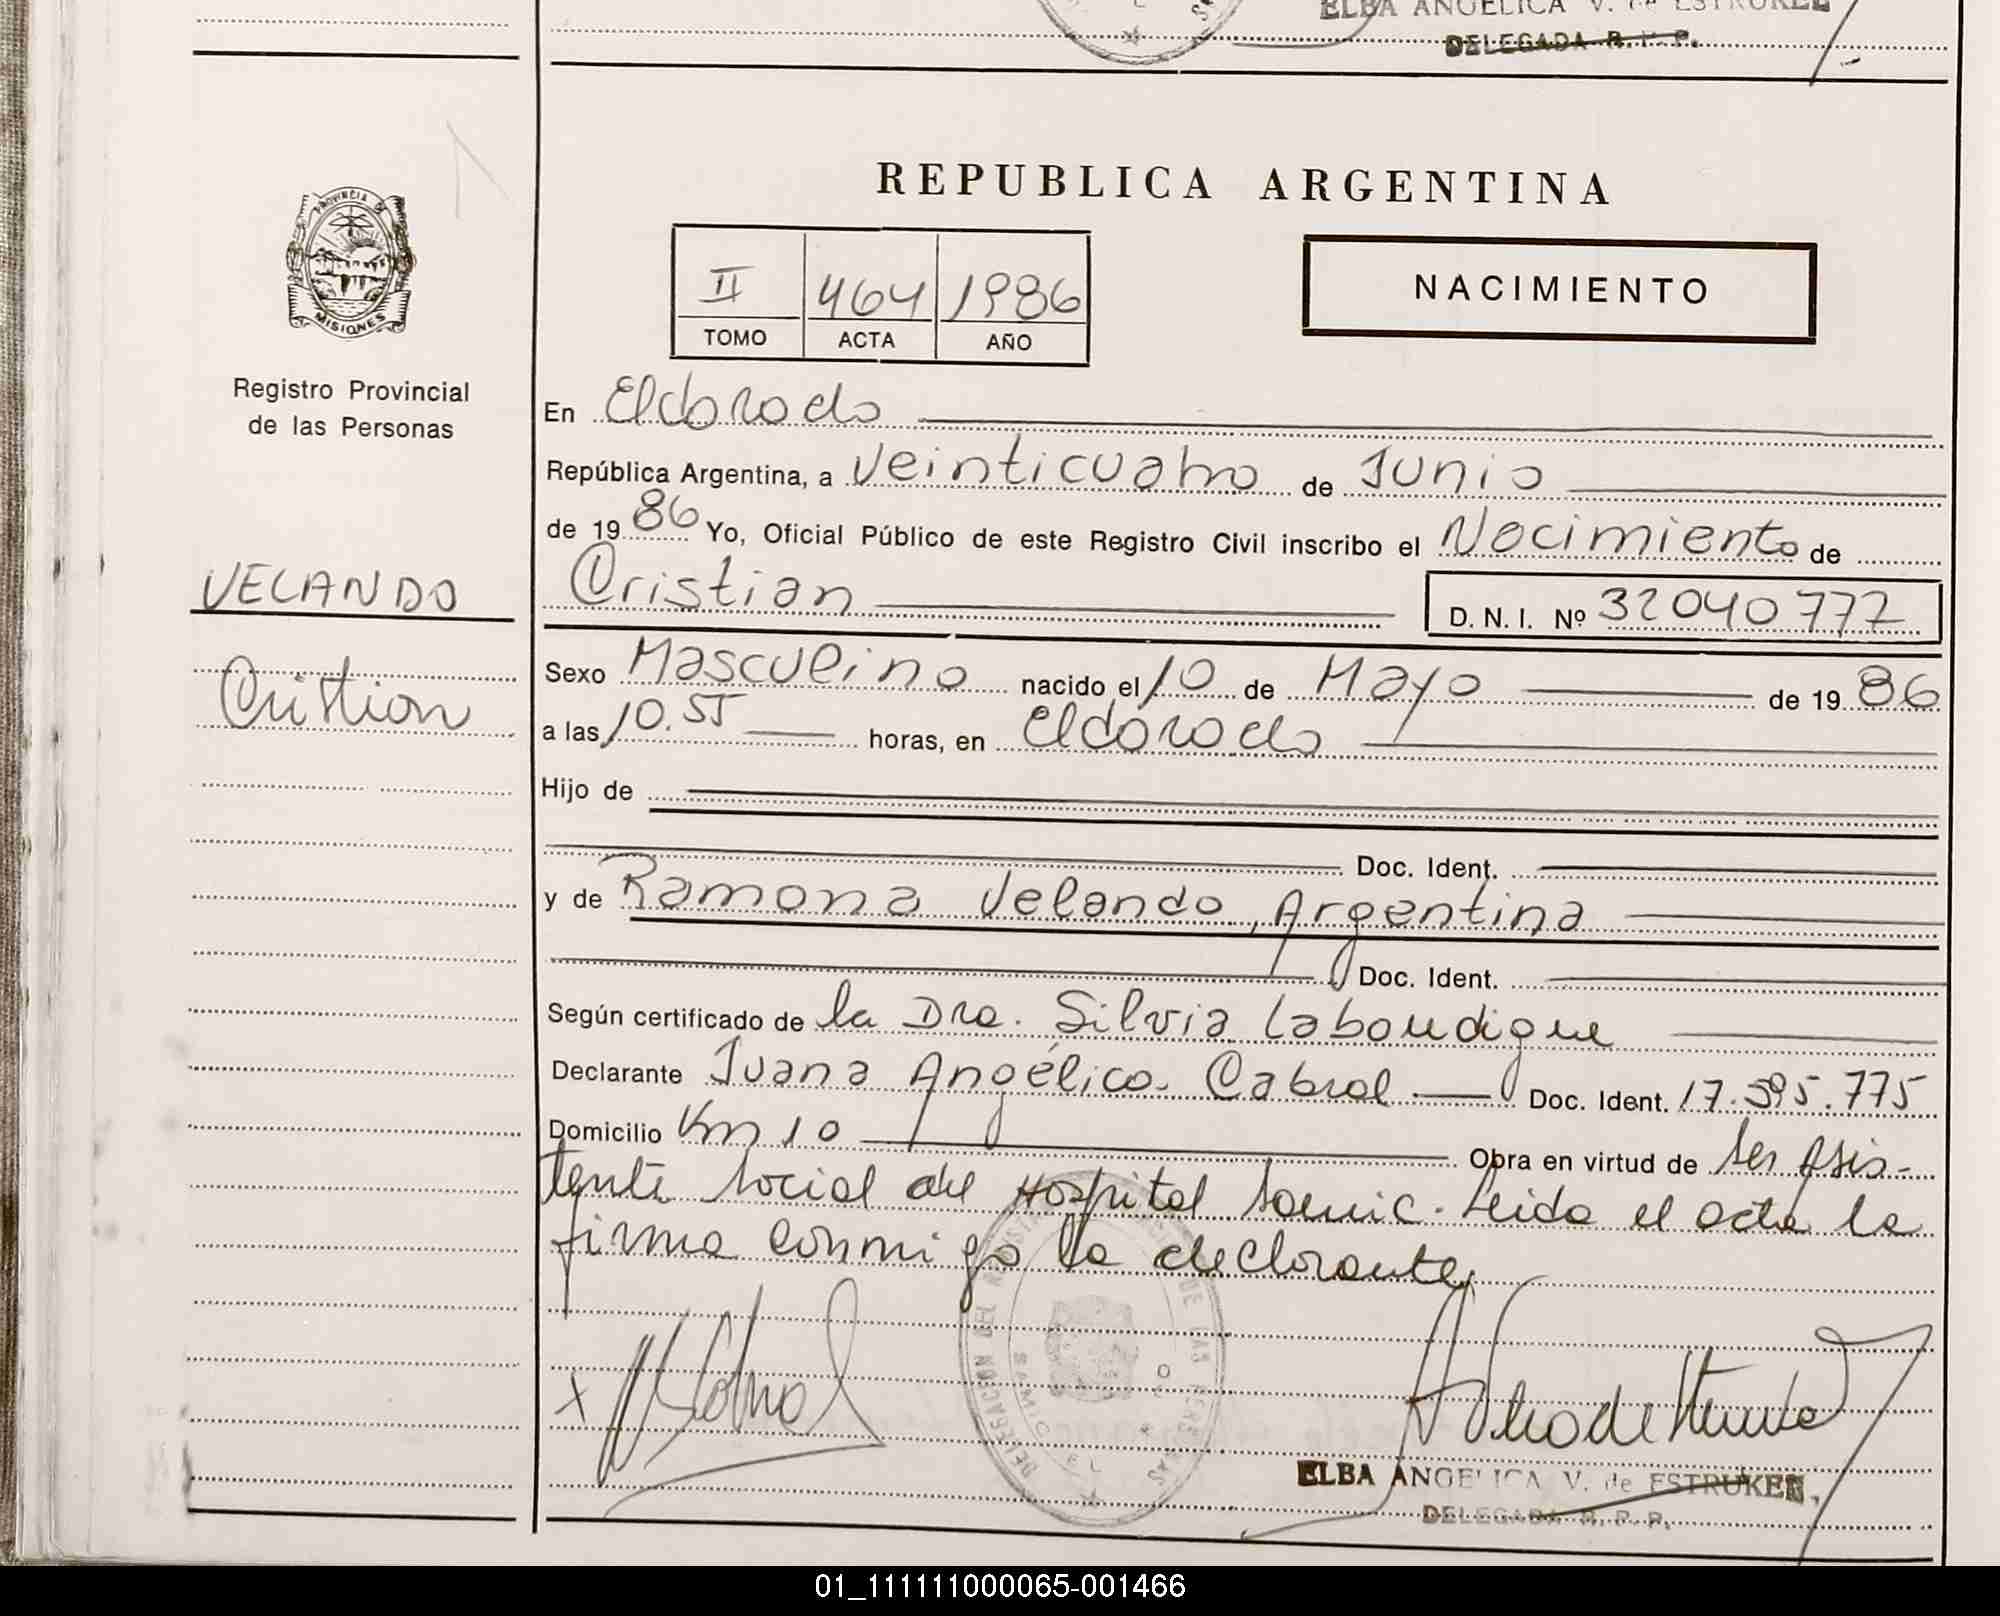 ELBA ANGELICA V. de ESTRUKEL
DELEGADA R. P. P.
REPUBLICA ARGENTINA
PROVINCIA DE
MISIONES
II 464 1986
TOMO ACTA AÑO
NACIMIENTO
Registro Provincial
de las Personas
En Eldorado
República Argentina, a veinticuatro de Junio
de 1986 Yo, Oficial Público de este Registro Civil inscribo el Nacimiento de
VELANDO
Cristian D. N. I. Nº 32040777
Cristian
Sexo Masculino nacido el 10 de Mayo de 1986
a las 10.55 horas, en Eldorado
Hijo de
Doc. Ident.
y de Ramona Velando, Argentina
Doc. Ident.
Según certificado de la Dra. Silvia Laboudigue
Declarante Juana Angélica Cabral Doc. Ident. 17.595.775
Domicilio Km 10 Obra en virtud de ser Asis-
tente Social del Hospital Samic. Leida el acta la
firma conmigo la declarante
ELBA ANGELICA V. de ESTRUKEL
DELEGADA R. P. P.
01_111111000065-001466